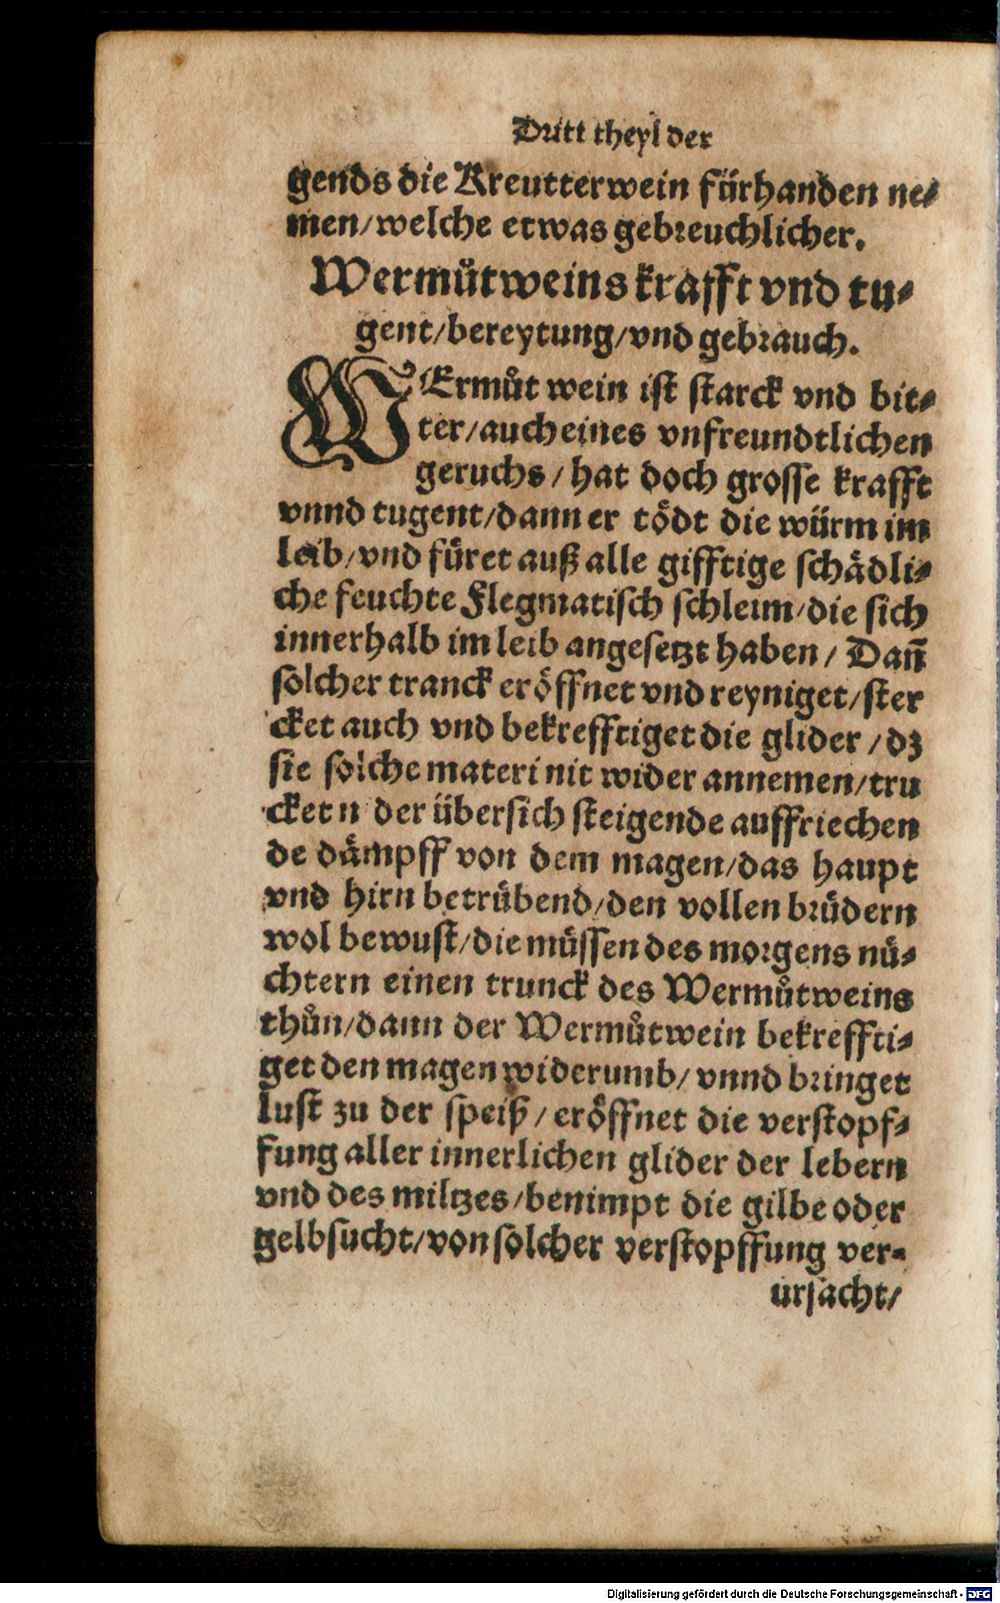 Dritt theyl der
gends die Kreutterwein fürhanden ne⸗
men/welche etwas gebreuchlicher.
Wermůtweins krafft vnd tu⸗
gent/bereytung/vnd gebrauch.
WErmůt wein ist starck vnd bit⸗
ter/auch eines vnfreundtlichen
geruchs/hat doch grosse krafft
vnnd tugent/dann er tödt die würm im
leib/vnd füret auß alle gifftige schädli⸗
che feuchte Flegmatisch schleim/die sich
innerhalb im leib angesetzt haben/Dañ
solcher tranck eröffnet vnd reyniget/ster
cket auch vnd bekrefftiget die glider/dz
sie solche materi nit wider annemen/tru
cket n der übersich steigende auffriechen
de dämpff von dem magen/das haupt
vnd hirn betrübend/den vollen brüdern
wol bewust/die müssen des morgens nü⸗
chtern einen trunck des Wermůtweins
thůn/dann der Wermůtwein bekreffti⸗
get den magen widerumb/vnnd bringet
lust zu der speiß/eröffnet die verstopf⸗
fung aller innerlichen glider der lebern
vnd des miltzes/benimpt die gilbe oder
gelbsucht/von solcher verstopffung ver⸗
ursacht/
Digitalisierung gefördert durch die Deutsche Forschungsgemeinschaft - DFG